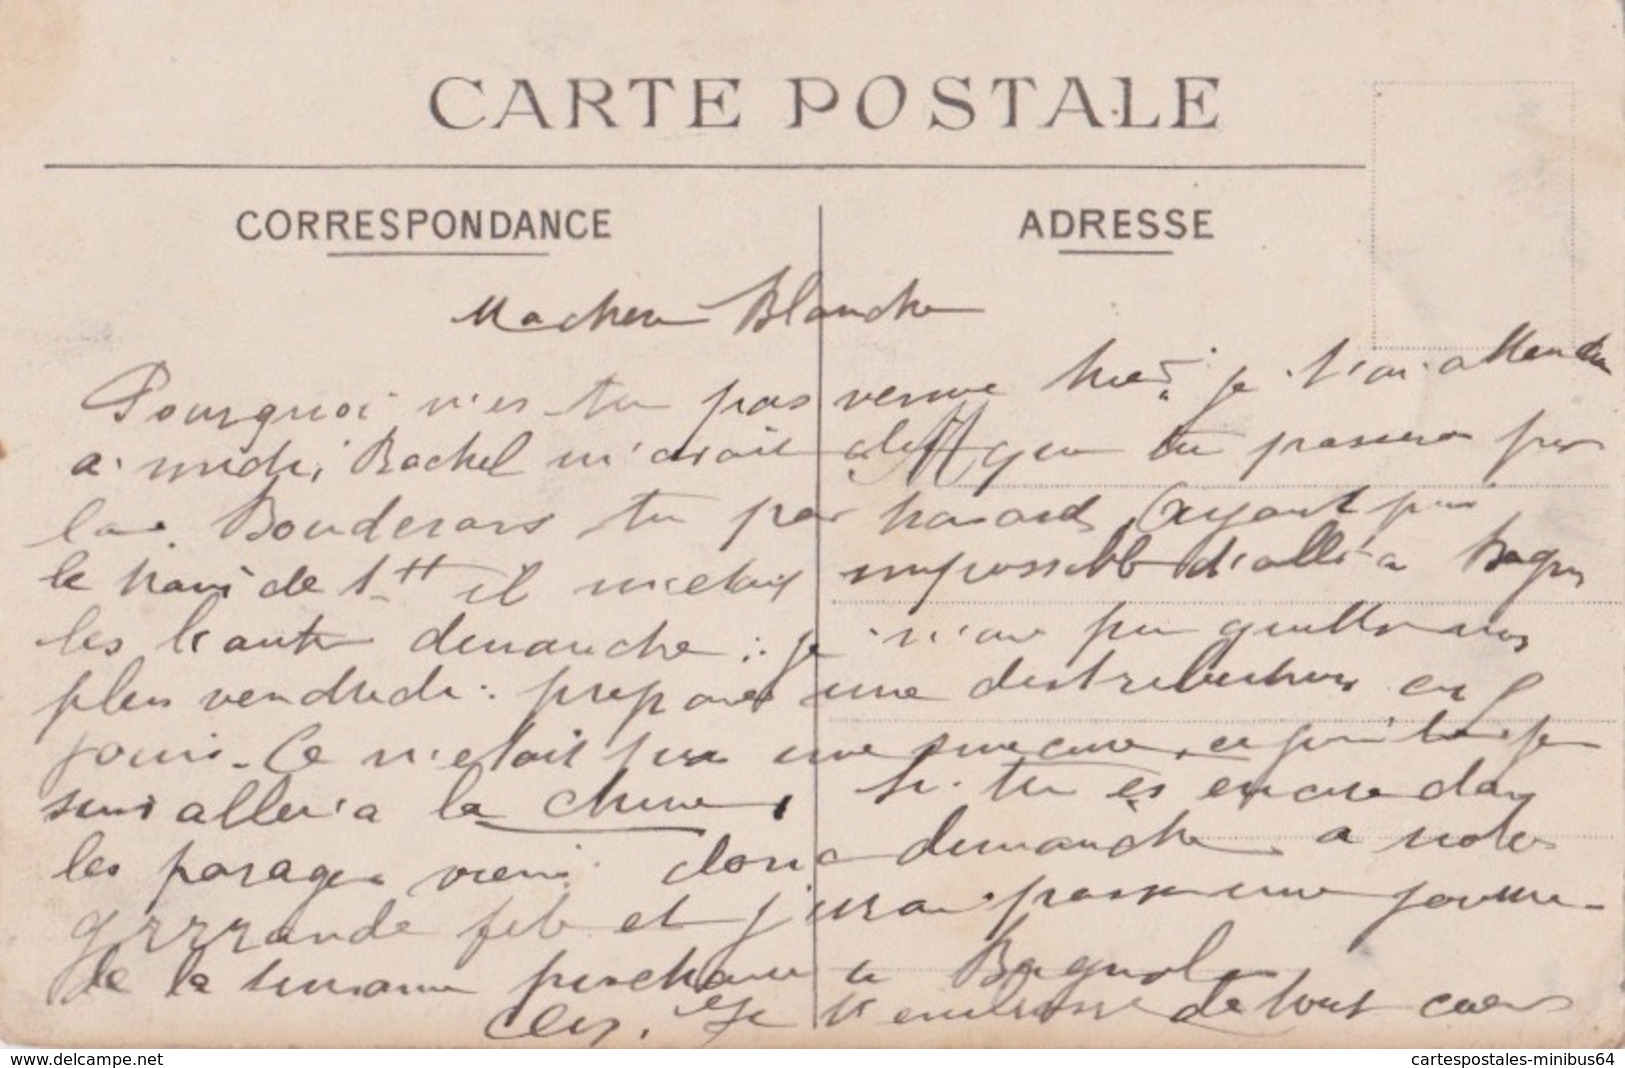 CARTE POSTALE
CORRESPONDANCE
ADRESSE
Ma chere Blanche
Pourquoi n'es tu pas venue hier. je t'ai attendu
a midi, Rachel m'avait dit que tu passera par
las Bouderans tu par hasard, ayant pris
le train de 1 il m'etait impossible d'aller a Bagno
les l'autre dimanche : je n'ai pu quitter
plus vendredi : preparer une distribution
jours. Ce n'etait pas une
suis aller a la Si tu es encore dans
les parages viens donc dimanche a notre
grrrrande fete et j'irai passer une journee
de la semaine prochaine a Bagnoles
Je t'embrasse de tout coeur
cartespostales-minibus64
www.delcampe.net